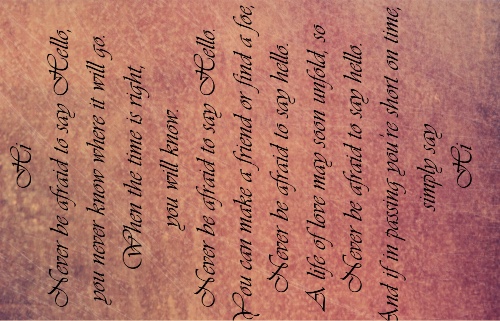 Hi
Never be afraid to say Hello,
you never know where it will go.
When the time is right,
you will know.
Never be afraid to say Hello.
You can make a friend or find a foe,
Never be afraid to say hello.
A life of love may soon unfold, so
Never be afraid to say hello.
And if in passing you're short on time,
simply say
Hi